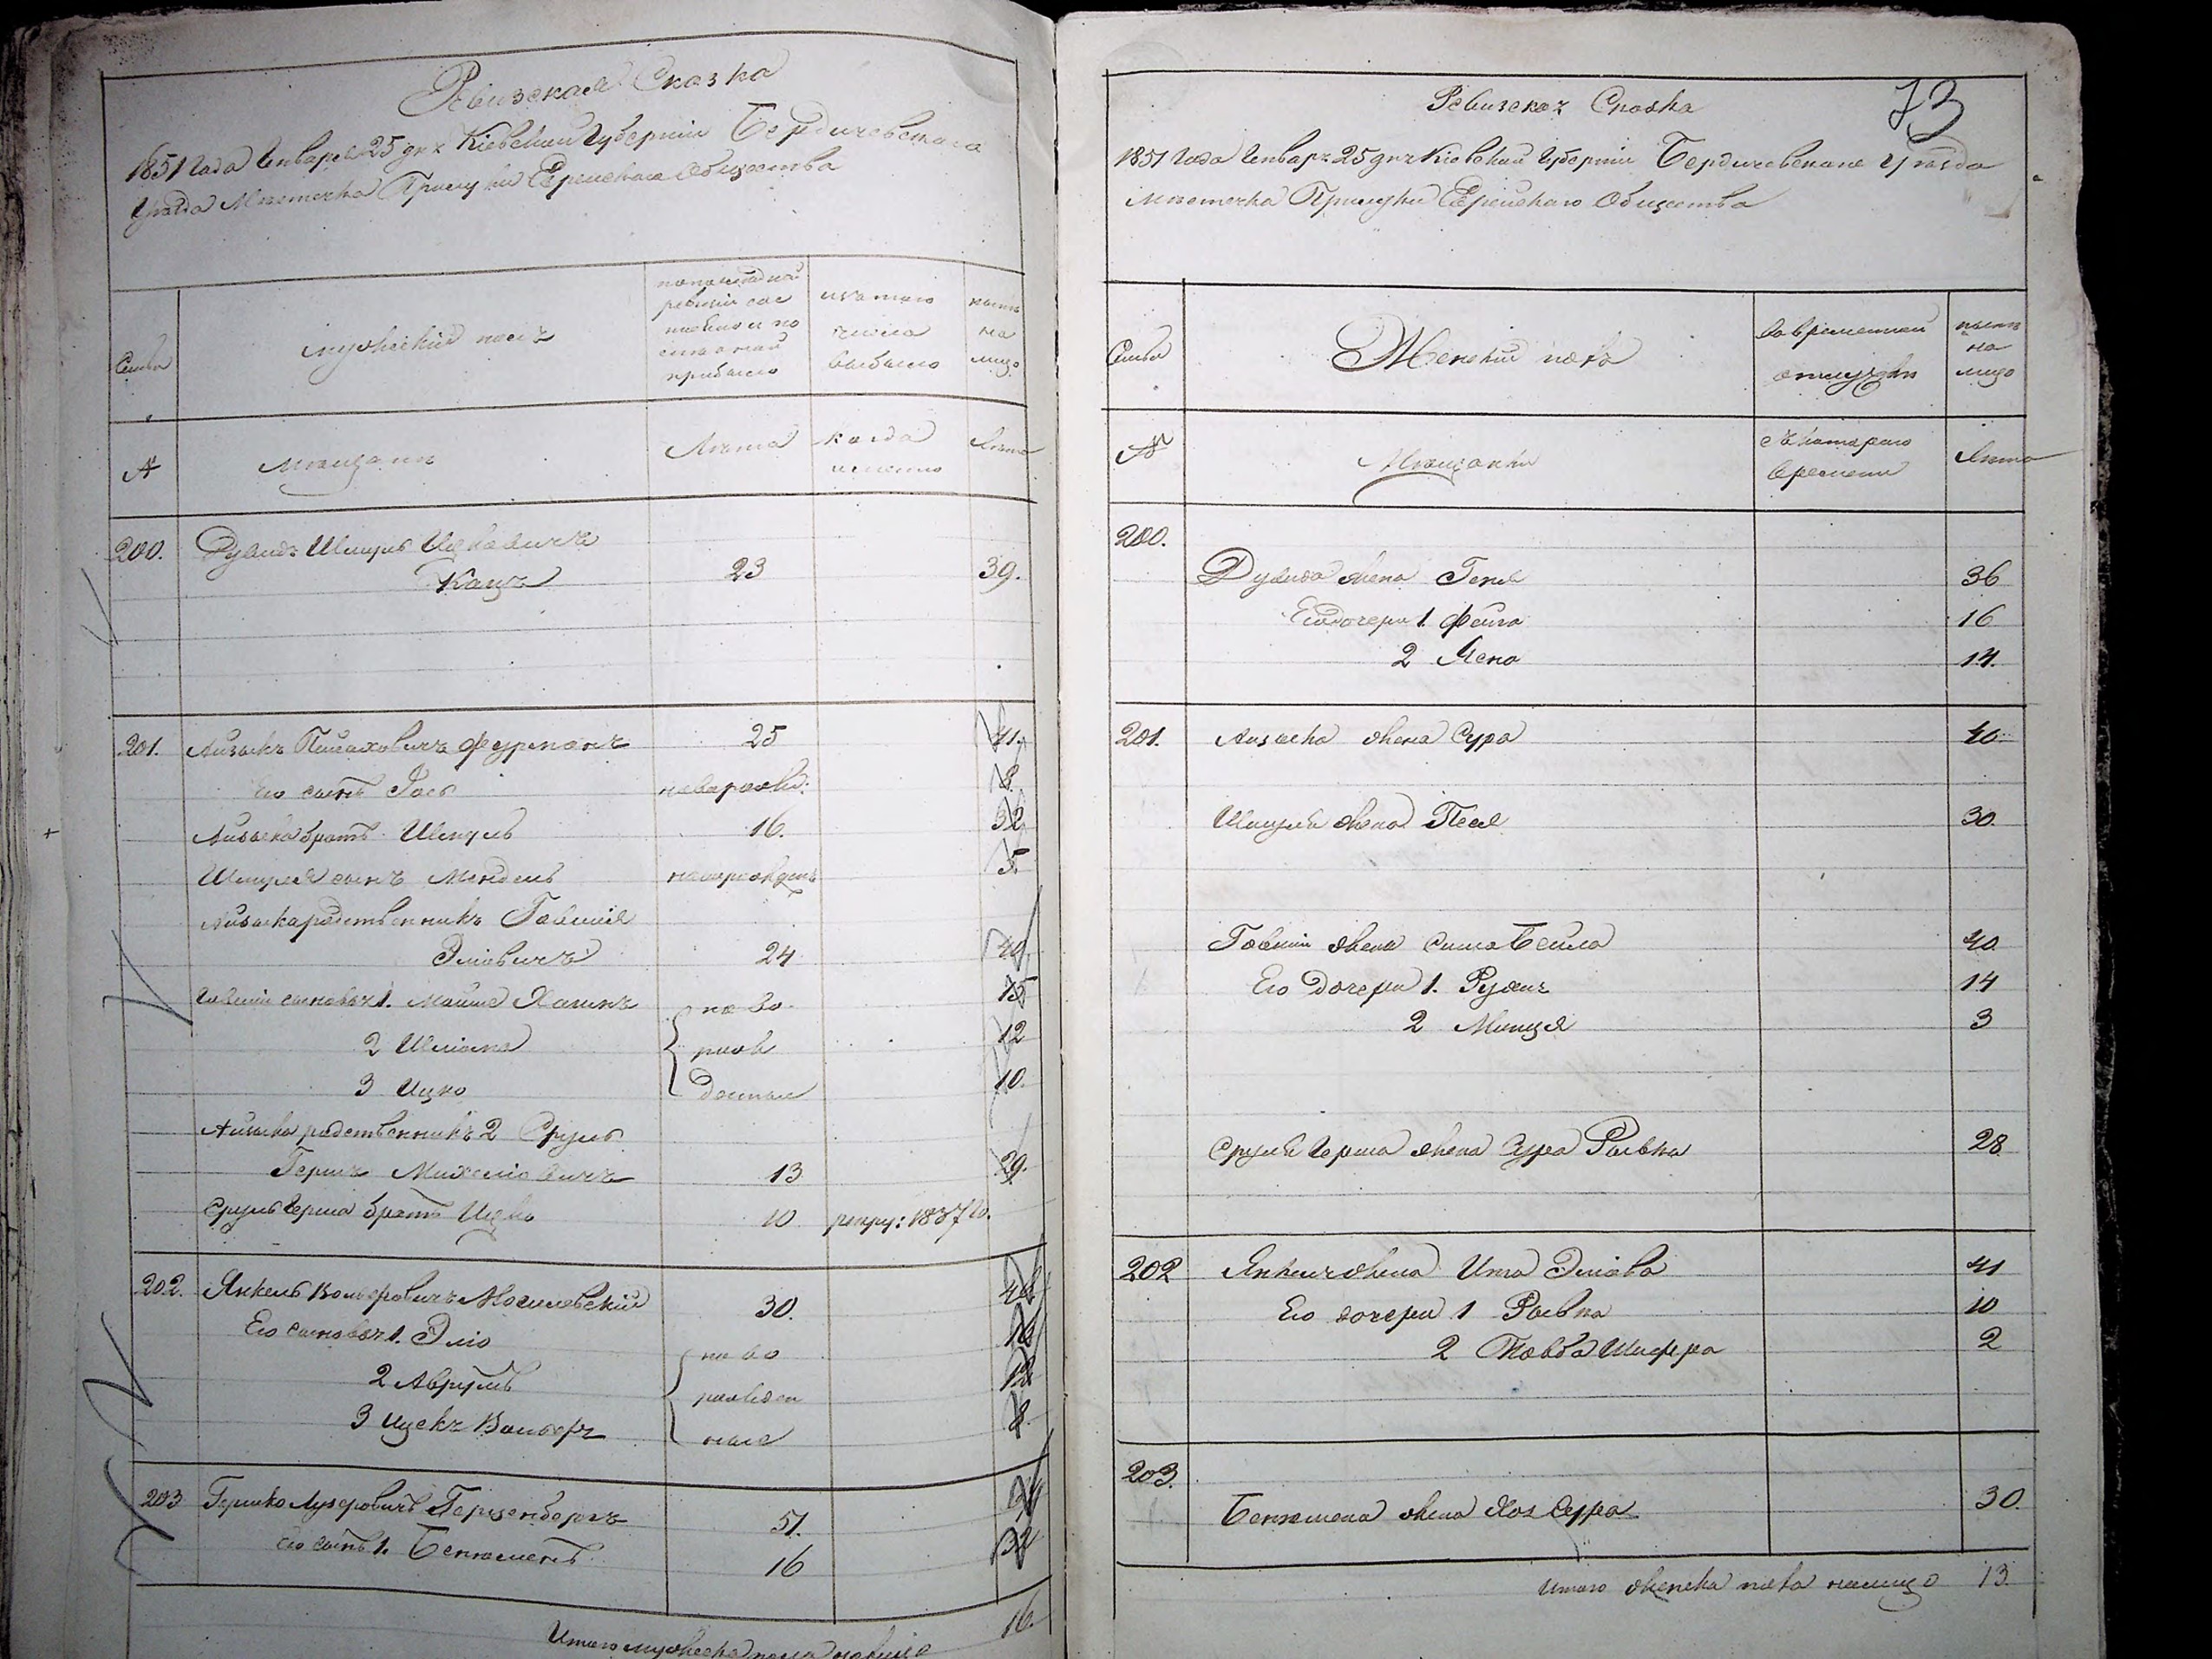 Ревизская Сказка
1851 года Генваря 25 дня Кіевской Губерніи Бердичевскаго
Уѣзда Мѣстечка Прилуки Еврейскаго Общества
Семьи
мужескій полъ
по последней
ревизіи сос
тояло и по
слѣ оной
прибыло
изъ того
числа
выбыло
нынѣ
на
лицо
№
мѣщане
Лѣта
когда
именно
Лѣта
200. Дувидъ Шмуль Ицковичъ
Кацъ 23 39.
201. Айзикъ Пейсаховичъ Фурманъ 25 41.
Его сынъ Іось новорожд: 8.
Айзика братъ Шмуль 16. 32
Шмуля сынъ Мендель новорожденъ 5
Айзика родственникъ Говшія
Эліовичъ 24 40
Говшіи сыновья 1. Мойше Хаимъ ново 15
2 Шліома рожд 12
3 Ицко 10.
Айзика родственникъ 2 Сруль
Гершъ Михеліовичъ 13 29.
Сруль Герша братъ Ицко 10 рекру: 1837 го.
202. Янкель Вольфовичъ Могилевскій 30. 46
Его сыновья 1. Эліо ново
2 Аврумъ рожден 12
3 Ицекъ Вольфъ ные 8.
203 Гершко Лузеровичъ Герценбергъ 51.
Его сынъ 1. Беньяминъ 16 32
Итого мужеска пола налицо 16.
73
Ревизская Сказка
1851 года Генваря 25 дня Кіевской Губерніи Бердичевскаго Уѣзда
Мѣстечка Прилуки Еврейскаго Общества
Семьи
Женскій полъ
Во временной
отлучкѣ
нынѣ
на
лицо
№
Мѣщанки
Съ котораго
времени
Лѣта
200.
Дувида жена Геня 36
Его дочери 1. Фейга 16
2 Лена 14.
201. Айзика жена Сура 40.
Шмуля жена Песя 30.
Говшіи жена Сима Бейла 40.
Его дочери 1. Рузя 14
2 Минця 3
Сруля Герша жена Сура Ривка 28
202 Янкеля жена Ита Эліова 41
Его дочери 1 Ривка 10
2 Товба Шифра 2
203.
Беньямина жена Хая Сура 30.
Итого женска пола налицо 13.